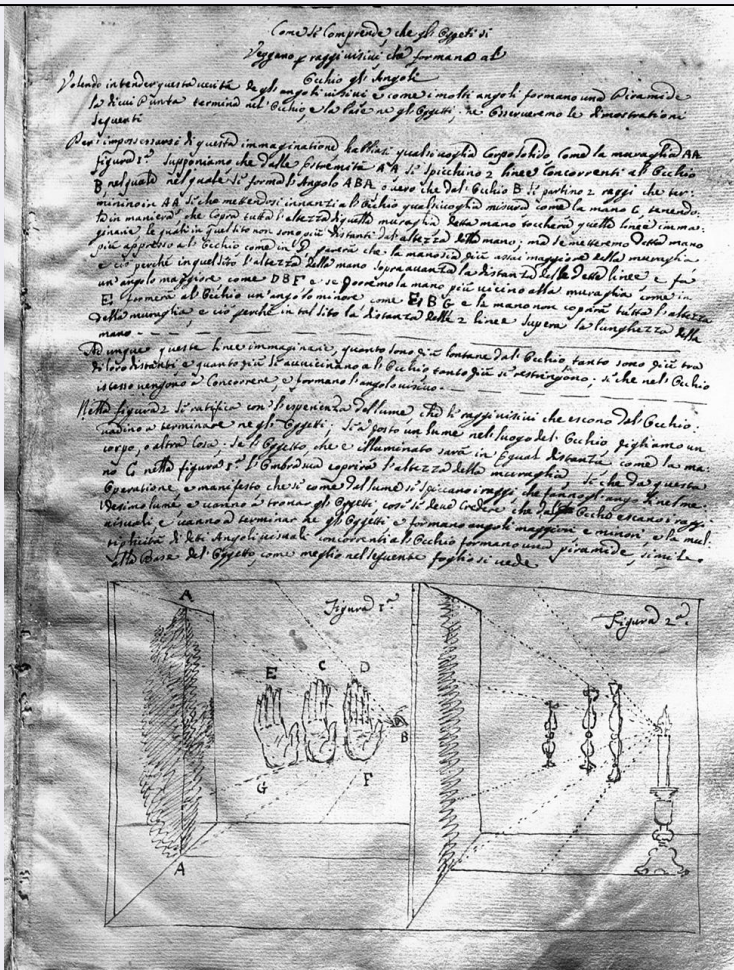 Come si Comprende, che gli Oggeti si
Veggano p raggi visivi che formano al
Occhio gli Angoli
Volendo intender questa unità de gli angoli visivi e come i molti angoli formano una Piramide
la di cui Punta termina nel Occhio, e la Base ne gli Oggetti; ne Osserveremo le dimostrationi
seguenti
Per impossessarsi di questa immaginatione habbiasi qualsivoglia Corpo Solido Come la muraglia AA
figura 1a. Supponiamo che dalle Estremità A A si spicchino 2 linee Concorrenti al Occhio
B nel quale si formi l'Angolo ABA, o vero che dal Occhio B si partino 2 raggi che ter:
minino in AA si che mettendosi innanzi al Occhio qualsivoglia misura come la mano C, tenendo:
la in maniera che copra tutta l'altezza di quella muraglia detta mano tocherà quelle linee imma:
ginarie, le quali in quel sito non sono più distanti del altezza della mano; ma se metteremo detta mano
più appresso al Occhio come in D parerà che la mano sia più assai maggiore della muraglia
e ciò perché in quel sito l'altezza della mano Sopravanza la distanza delle dette linee e fa
un angolo maggiore come DBF e se poremo la mano più vicino alla muraglia come in
E formerà al Occhio un angolo minore come EBG e la mano non coprirà tutta l'altezza
della muraglia, e ciò perché in tal sito la distanza delle 2 linee Supera la lunghezza della
mano.
Adunque queste linee immaginarie, quanto sono più lontane dal Occhio tanto sono più tra
di loro distanti e quanto più si avvicinano al Occhio tanto più si restringono; si che nel Occhio
istesso vengono à Concorrere, e formano l'angolo visivo
Nella figura 2 si ratifica con l'esperienza del lume, che li raggi visivi che escono dal Occhio:
vadino a terminare ne gli Oggetti; Sia posto un lume nel luogo del Occhio pigliamo un
corpo, o altra Cosa; se l'Oggetto, che è illuminato sarà in Equal distanza come la ma:
no C nella figura 1a l'Ombra sua coprirà l'altezza della muraglia, si che da questa
Operatione, è manifesto che si come dal lume si spiccano i raggi, che fanno gli angoli nel me:
desimo lume, e vanno à trovar gli Oggetti così si deve Credere che dal Occhio escano i raggi
visuali e vanno à terminar ne gli Oggetti e formano angoli maggiori, e minori, e la mul:
tiplicità di deti Angoli visuali concorrenti al Occhio formano una piramide, simile
alla Base del Oggetto, come meglio nel seguente foglio si vede
Figura 1a.
Figura 2a.
A
E C D
B
G F
A